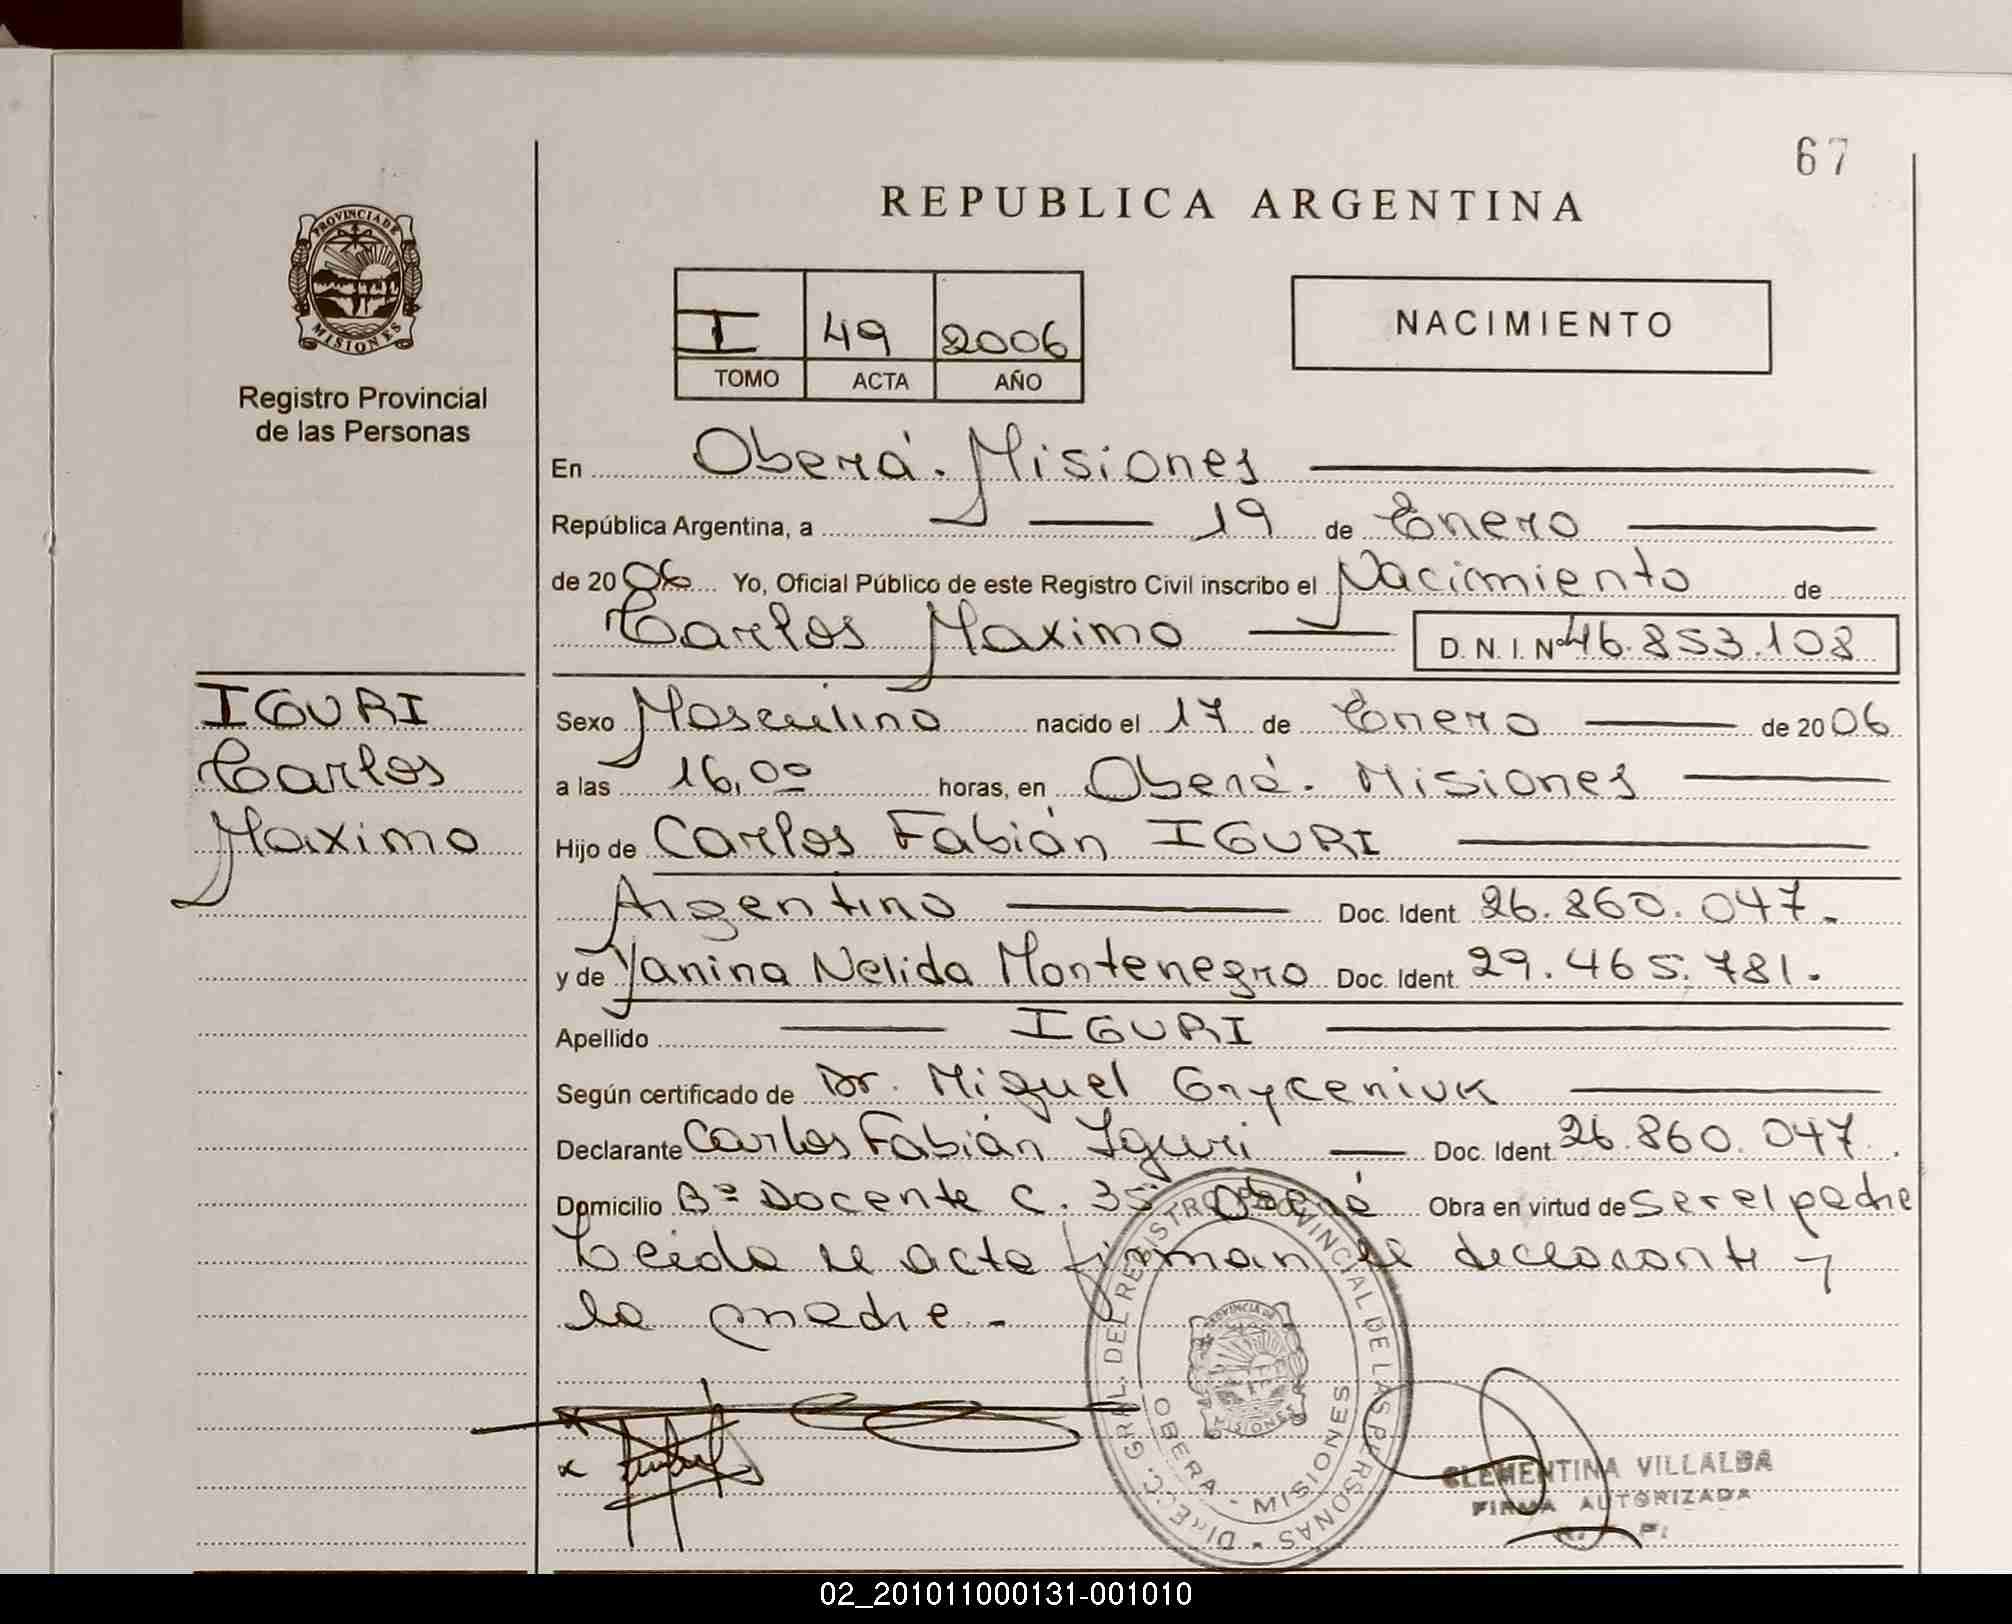 67
REPUBLICA ARGENTINA
PROVINCIA DE
MISIONES
Registro Provincial
de las Personas
I 49 2006
TOMO ACTA AÑO
NACIMIENTO
En Oberá. Misiones
República Argentina, a 19 de Enero
de 2006 Yo, Oficial Público de este Registro Civil inscribo el Nacimiento de
Carlos Maximo D. N. I. Nº 46.853.108
IGURI
Carlos
Maximo
Sexo Masculino nacido el 17 de Enero de 2006
a las 16,00 horas, en Oberá. Misiones
Hijo de Carlos Fabián IGURI
Argentino Doc. Ident. 26.860.047.
y de Yanina Nelida Montenegro Doc. Ident. 29.465.781.
Apellido IGURI
Según certificado de Dr. Miguel Gryceniuk
Declarante Carlos Fabián Iguri Doc. Ident. 26.860.047.
Domicilio Bº Docente C. 35 Oberá Obra en virtud de ser el padre
Leida el acta firman el declarante y
la madre.-
DIREC. GRAL. DEL REGISTRO PROVINCIAL DE LAS PERSONAS
PROVINCIA DE
MISIONES
OBERA - MISIONES
CLEMENTINA VILLALBA
FIRMA AUTORIZADA
02_201011000131-001010